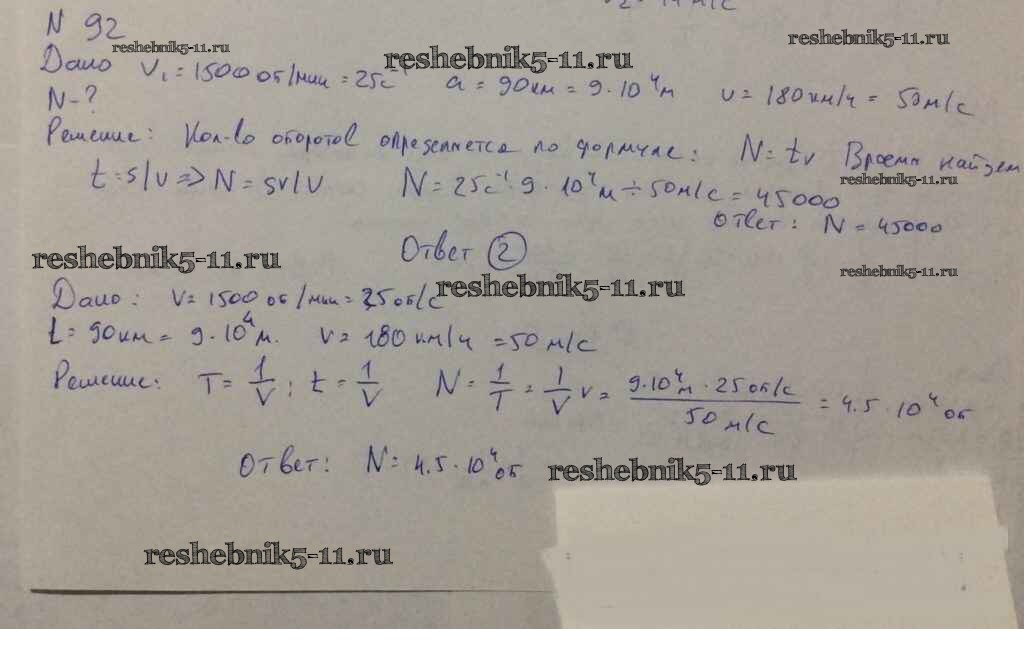 N 92
reshebnik5-11.ru
reshebnik5-11.ru
reshebnik5-11.ru
Дано V₁ = 1500 об/мин = 25с⁻¹ a = 90км = 9·10⁴м v = 180км/ч = 50м/с
N-?
Решение: Кол-во оборотов определяется по формуле: N = tv Время найдем
reshebnik5-11.ru
t = s/v => N = sv/V N = 25с⁻¹·9·10⁴м ÷ 50м/с = 45000
Ответ: N = 45000
Ответ 2
reshebnik5-11.ru
reshebnik5-11.ru
reshebnik5-11.ru
Дано: V = 1500 об/мин = 25 об/с
l = 90км = 9·10⁴ м. v = 180 км/ч = 50 м/с
Решение: T = 1/V; t = 1/V N = 1/T = 1/V v = 9·10⁴м · 25 об/с / 50 м/с = 4.5·10⁴ об
Ответ: N = 4.5·10⁴ об
reshebnik5-11.ru
reshebnik5-11.ru